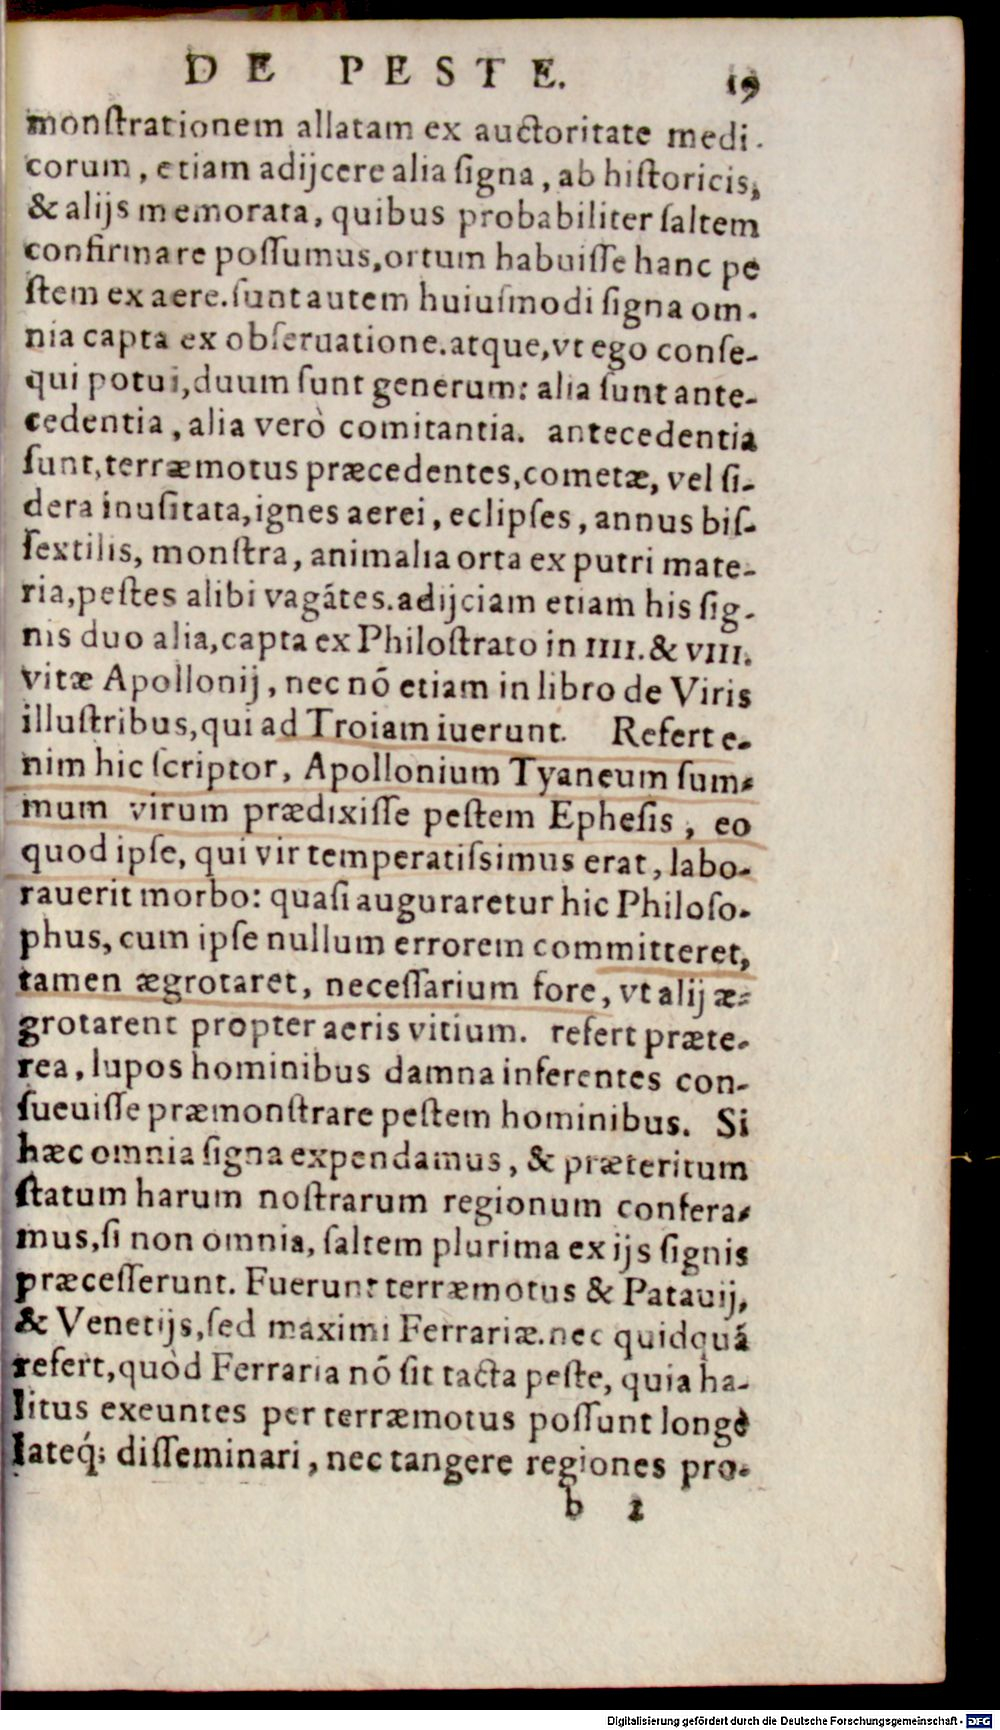 DE PESTE. 19
monſtrationem allatam ex auctoritate medi-
corum, etiam adijcere alia ſigna, ab hiſtoricis,
& alijs memorata, quibus probabiliter ſaltem
confirmare poſſumus, ortum habuiſſe hanc pe
ſtem ex aere. ſunt autem huiuſmodi ſigna om-
nia capta ex obſeruatione. atque, vt ego conſe-
qui potui, duum ſunt generum: alia ſunt ante-
cedentia, alia verò comitantia. antecedentia
ſunt, terræmotus præcedentes, cometæ, vel ſi-
dera inuſitata, ignes aerei, eclipſes, annus biſ-
ſextilis, monſtra, animalia orta ex putri mate-
ria, peſtes alibi vagātes. adijciam etiam his ſig-
nis duo alia, capta ex Philoſtrato in IIII. & VIII.
vitæ Apollonij, nec nō etiam in libro de Viris
illuſtribus, qui ad Troiam iuerunt. Refert e-
nim hic ſcriptor, Apollonium Tyaneum ſum-
mum virum prædixiſſe peſtem Epheſis, eo
quod ipſe, qui vir temperatiſsimus erat, labo-
rauerit morbo: quaſi auguraretur hic Philoſo-
phus, cum ipſe nullum errorem committeret,
tamen ægrotaret, neceſſarium fore, vt alij æ-
grotarent propter aeris vitium. refert præte-
rea, lupos hominibus damna inferentes con-
ſueuiſſe præmonſtrare peſtem hominibus. Si
hæc omnia ſigna expendamus, & præteritum
ſtatum harum noſtrarum regionum confera-
mus, ſi non omnia, ſaltem plurima ex ijs ſignis
præceſſerunt. Fuerunt terræmotus & Patauij,
& Venetijs, ſed maximi Ferrariæ. nec quidquā
refert, quòd Ferraria nō ſit tacta peſte, quia ha-
litus exeuntes per terræmotus poſſunt longè
lateq́; diſſeminari, nec tangere regiones pro-
b 2
Digitalisierung gefördert durch die Deutsche Forschungsgemeinschaft - DFG